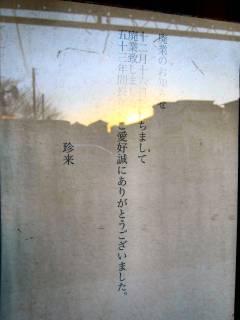 廃業のお知らせ
十二月十 ちまして
廃業致しまし
五十三年間 ご愛好誠にありがとうございました。
珍来